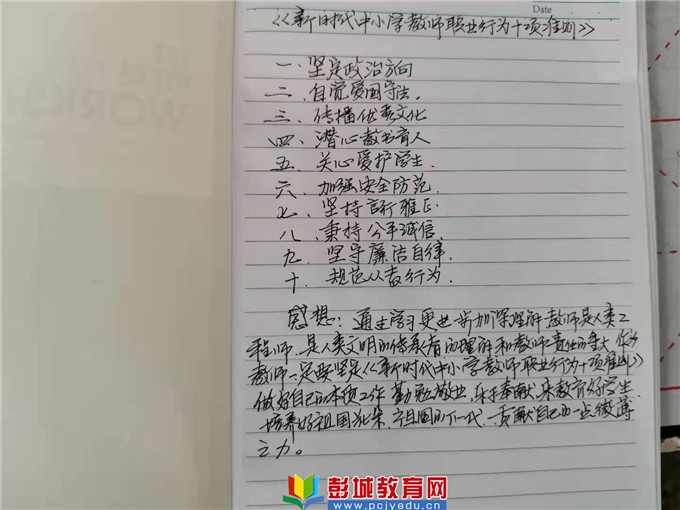 Date
《新时代中小学教师职业行为十项准则》
一、坚定政治方向
二、自觉爱国守法.
三、传播优秀文化
四、潜心教书育人
五、关心爱护学生.
六、加强安全防范.
七、坚持言行雅正
八、秉持公平诚信.
九、坚守廉洁自律.
十、规范从教行为.
感想：通过学习更进一步加深理解教师是人类工
程师.是人类文明的传承者的理解和教师责任的重大.作为
教师一定要坚定《新时代中小学教师职业行为十项准则》
做好自己的本职工作 勤勉敬业,乐于奉献,来教育好学生.
培养好祖国花朵.为祖国的下一代.贡献自己的一点微薄
之力。
彭城教育网
www.pcjyedu.cn